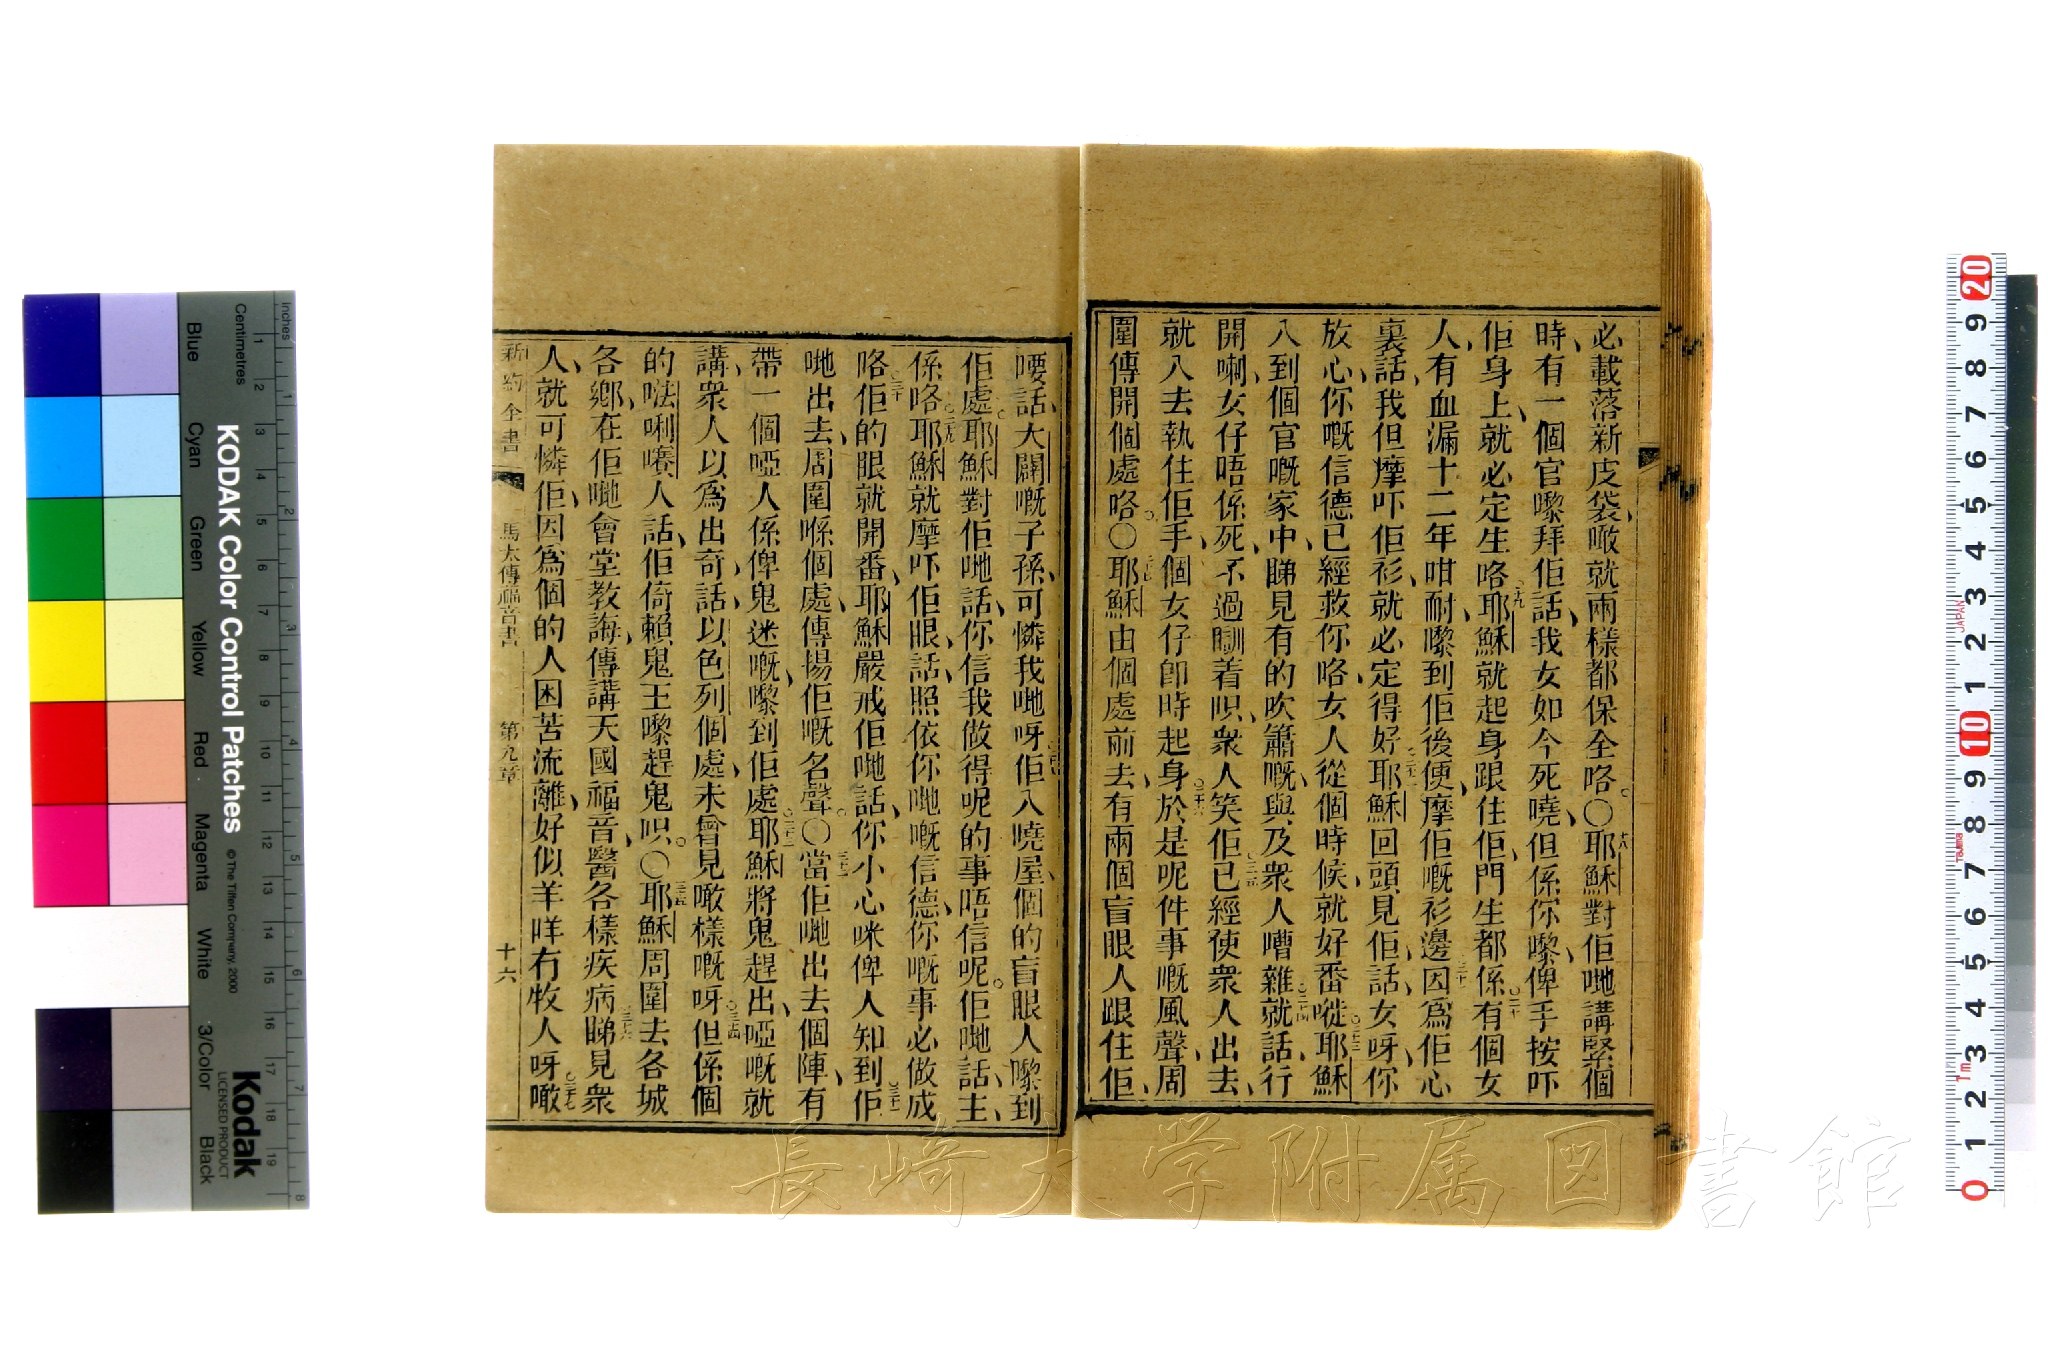 必載落新皮袋、噉就兩樣都保全咯。〇十八耶穌對佢哋講緊個
時、有一個官嚟拜佢話、我女如今死曉、但係你嚟、俾手按吓
佢身上、就必定生咯。十九耶穌就起身跟住佢、門生都係。二十有個女
人、有血漏十二年咁耐、嚟到佢後便、摩佢嘅衫邊。二十一因爲佢心
裏話、我但摩吓佢衫、就必定得好。二十二耶穌回頭見佢、話、女呀、你
放心、你嘅信德已經救你咯、女人從個時候、就好番嘥。二十三耶穌
入到個官嘅家中、睇見有的吹簫嘅、與及衆人嘈雜、二十四就話、行
開喇、女仔唔係死、不過瞓着呮、衆人笑佢。二十五已經使衆人出去、
就入去執住佢手、個女仔卽時起身。二十六於是呢件事嘅風聲、周
圍傳開個處咯。〇二十七耶穌由個處前去、有兩個盲眼人跟住佢、
嗌話、大闢嘅子孫、可憐我哋呀。二十八佢入曉屋、個的盲眼人嚟到
佢處。耶穌對佢哋話、你信我做得呢的事唔信呢。佢哋話、主、
係咯。二十九耶穌就摩吓佢眼、話、照依你哋嘅信德、你嘅事必做成
咯。三十佢的眼就開番、耶穌嚴戒佢哋話、你小心咪俾人知到。三十一佢
哋出去、周圍喺個處、傳揚佢嘅名聲。〇三十二當佢哋出去個陣、有
帶一個啞人係俾鬼迷嘅、嚟到佢處。三十三耶穌將鬼趕出、啞嘅就
講、衆人以爲出奇、話、以色列個處、未曾見噉樣嘅呀。三十四但係個
的㗒唎㘔人話、佢倚賴鬼王嚟趕鬼呮。〇三十五耶穌周圍去各城
各鄉、在佢哋會堂教誨、傳講天國福音、醫各樣疾病。三十六睇見衆
人、就可憐佢、因爲個的人困苦流離、好似羊咩冇牧人呀。三十七噉
新約全書 馬太傳福音書 第九章 十六
KODAK Color Control Patches
© The Tiffen Company, 2000
Kodak
LICENSED PRODUCT
Inches
Centimetres
Blue Cyan Green Yellow Red Magenta White 3/Color Black
長崎大学附属図書館
JAPAN